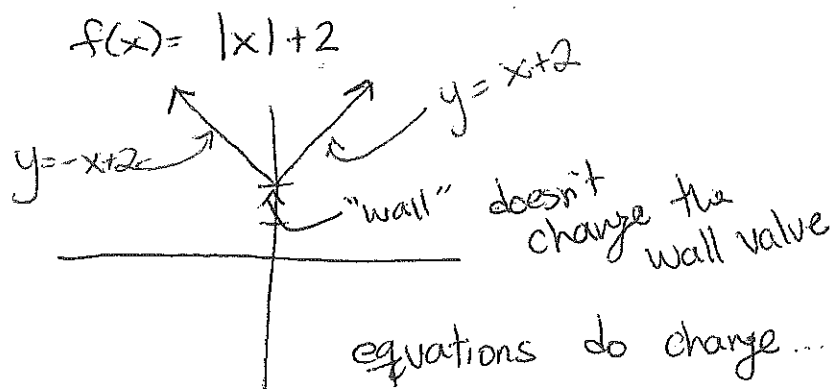 f(x)= |x|+2
y=x+2
y=-x+2
"wall" doesn't
change the
wall value
equations do change...